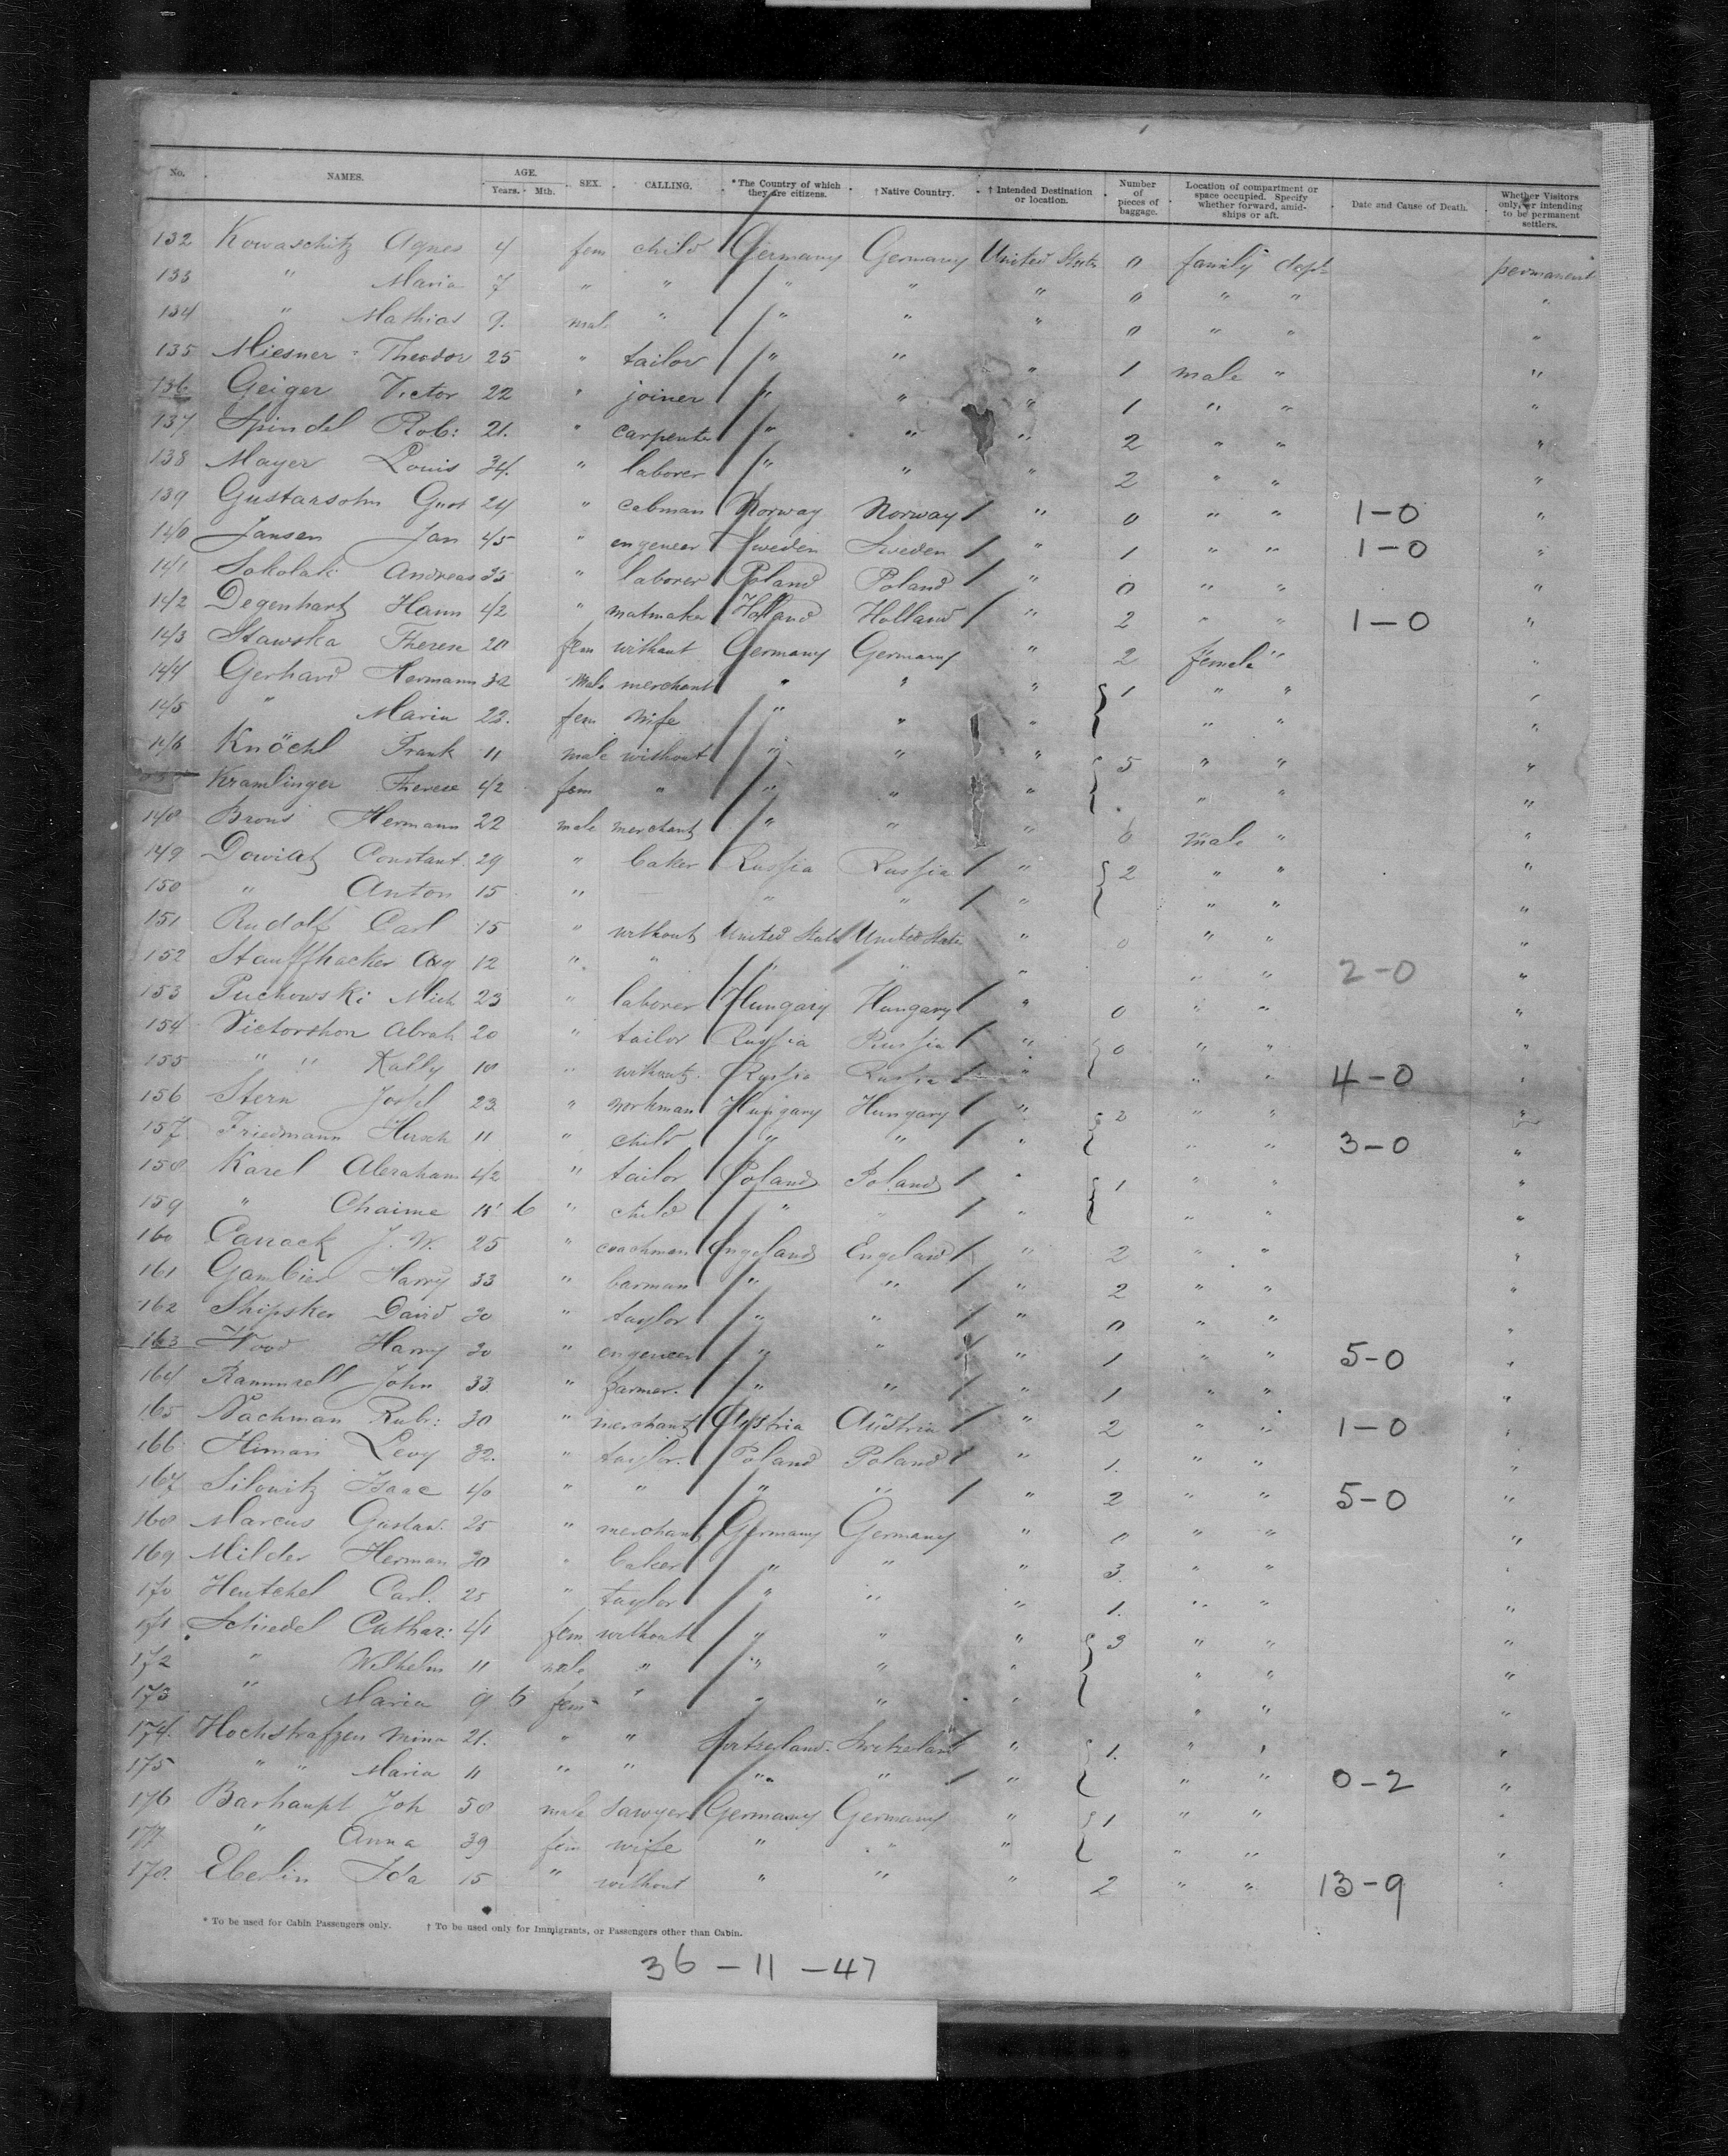 No. NAMES. AGE. Years. Mth. SEX. CALLING. *The Country of which they are citizens. †Native Country. †Intended Destination or location. Number of pieces of baggage. Location of compartment or space occupied. Specify whether forward, amidships or aft. Date and Cause of Death. Whether Visitors only, or intending to be permanent settlers.
132 Kowaschitz Agnes 4 fem child Germany Germany United States 0 family dept permanent
133 " Maria 7 " " " " " 0 " " "
134 " Mathias 9. male " " " " 0 " " "
135 Miesner Theodor 25 " tailor " " " 1 male " "
136 Geiger Victor 22 " joiner " " " 1 " " "
137 Spindel Rob: 21. " carpenter " " " 2 " " "
138 Mayer Louis 34. " laborer " " " 2 " " "
139 Gustarsohn Gust 24 " cabman Norway Norway " 0 " " 1-0 "
140 Jansen Jan 45 " engeneer Sweden Sweden " 1 " " 1-0 "
141 Sokolak Andreas 35 " laborer Poland Poland " 0 " " "
142 Degenhart Hann 42 " matmaker Holland Holland " 2 " " 1-0 "
143 Stawska Theresa 20 fem without Germany Germany " 2 female " "
144 Gerhard Hermann 32 male merchant " " " 1 " " "
145 " Maria 22. fem wife " " " " " "
146 Knöchl Frank 11 male without " " " 5 " " "
Kramlinger Therese 42 fem " " " " " " "
148 Brons Hermann 22 male merchant " " " 6 male " "
149 Dowiat Constant. 29 " baker Russia Russia " 2 " " "
150 " Anton 15 " " " " " " "
151 Rudolf Carl 15 " without United States United States " 0 " " "
152 Stauffhacker Aug 12 " " " " " " " 2-0 "
153 Puchowski Mich 23 " laborer Hungary Hungary " 0 " " "
154 Victorshon Abrah 20 " tailor Russia Russia " 0 " " "
155 " " Kally 10 " without Russia Russia " " " 4-0 "
156 Stern Josel 23 " workman Hungary Hungary " 2 " " "
157. Friedmann Hirsch 11 " child " " " " " 3-0 "
158. Karel Abraham 42 " tailor Poland Poland " 1 " " "
159 " Chaime 6 " child " " " " " "
160 Carrack J. W. 25 " coachman Engeland Engeland " 2 " " "
161 Gambier Harry 33 " barman " " " 2 " " "
162 Shipsker David 30 " taylor " " " 0 " " "
163 Wood Harry 30 " engeneer " " " 1 " " 5-0 "
164 Rammell John 33 " farmer. " " " 1 " " "
165 Nachman Rubr: 30 " merchant Austria Austria " 2 " " 1-0 "
166 Himan Levy 32. " taylor. Poland Poland " 1. " " "
167 Silowitz Isaac 40 " " " " " 2 " " 5-0 "
168 Marcus Gustav. 25 " merchant Germany Germany " 0 " " "
169 Milder Herman 30 " baker " " " 3. " "
170 Hentchel Carl. 25 " taylor " " " 1. " " "
171 Schiedel Cathar: 41 fem without " " " 3 " " "
172 " Wilhelm 11 male " " " " " " "
173 " Maria 9 6 fem " " " " " " "
174. Hochstrafzen Mina 21. " " Switzeland. Switzeland " 1. " " "
175 " " Maria 11 " " " " " " " 0-2 "
176 Barhaupt Joh 50 male sawyer Germany Germany " 1 " " "
177 " Anna 39 fem wife " " " " " "
178. Eberlin Ida 15 " without " " " 2 " " 13-9 "
* To be used for Cabin Passengers only. † To be used only for Immigrants, or Passengers other than Cabin.
36-11-47